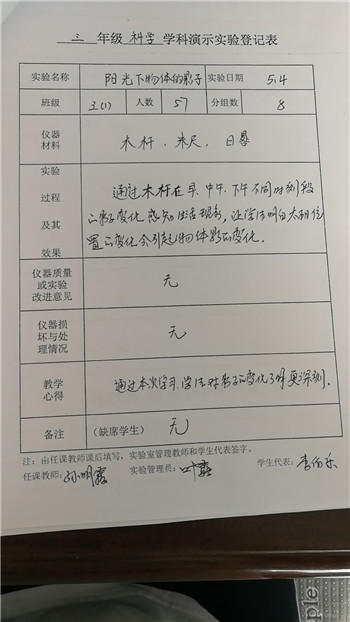 三 年级 科学 学科演示实验登记表
实验名称 阳光下物体的影子 实验日期 5.4
班级 三(1) 人数 57 分组数 8
仪器材料 木杆、米尺、日晷
实验过程及其效果
通过木杆在早、中午、下午不同时刻段
的影子变化,感知生活现象,让学生明白太阳位
置的变化会引起物体影子的变化。
仪器质量或实验改进意见 无
仪器损坏与处理情况 无
教学心得 通过本次学习,学生对影子的变化了解更深刻。
备注 (缺席学生) 无
注:由任课教师课后填写,实验室管理教师和学生代表签字。
任课教师: 实验管理员: 学生代表:
ple